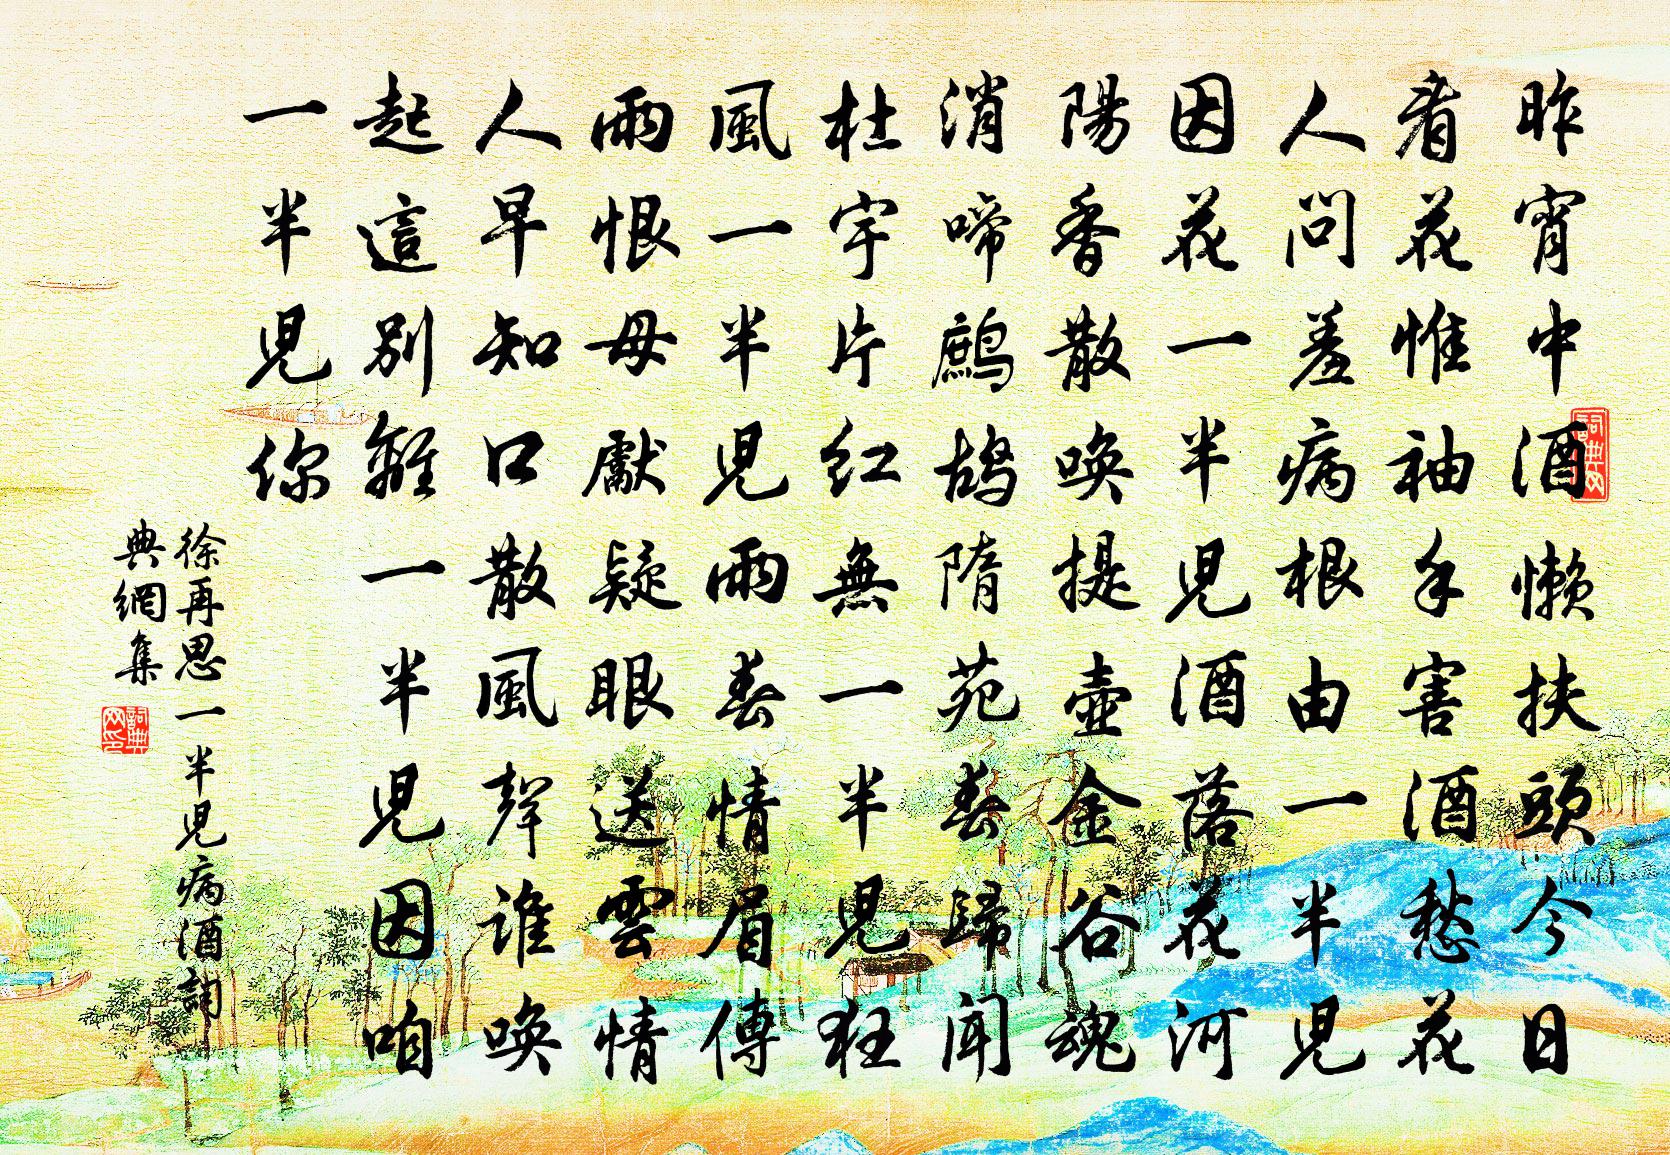 昨宵中酒懶扶頭今日
看花惟袖手害酒愁花
人問羞病根由一半兒
因花一半兒酒落花河
陽香散喚提壺金谷魂
消啼鷓鴣隋苑春歸聞
杜宇片紅無一半兒狂
風一半兒雨春情眉傳
雨恨母獻疑眼送雲情
人早知口散風聲誰喚
起這別離一半兒因咱
一半兒你
徐再思一半兒病酒詞
典網集
詞典网
詞典网印